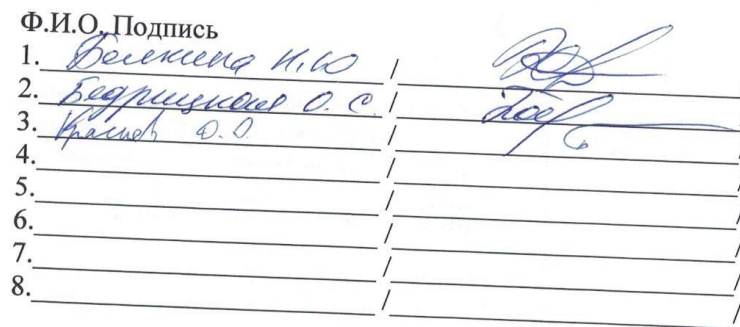 Ф.И.О. Подпись
1. Белкина Н.Ю /
2. Бедрицкая О. С. /
3. О.О. /
4. / /
5. / /
6. / /
7. / /
8. / /